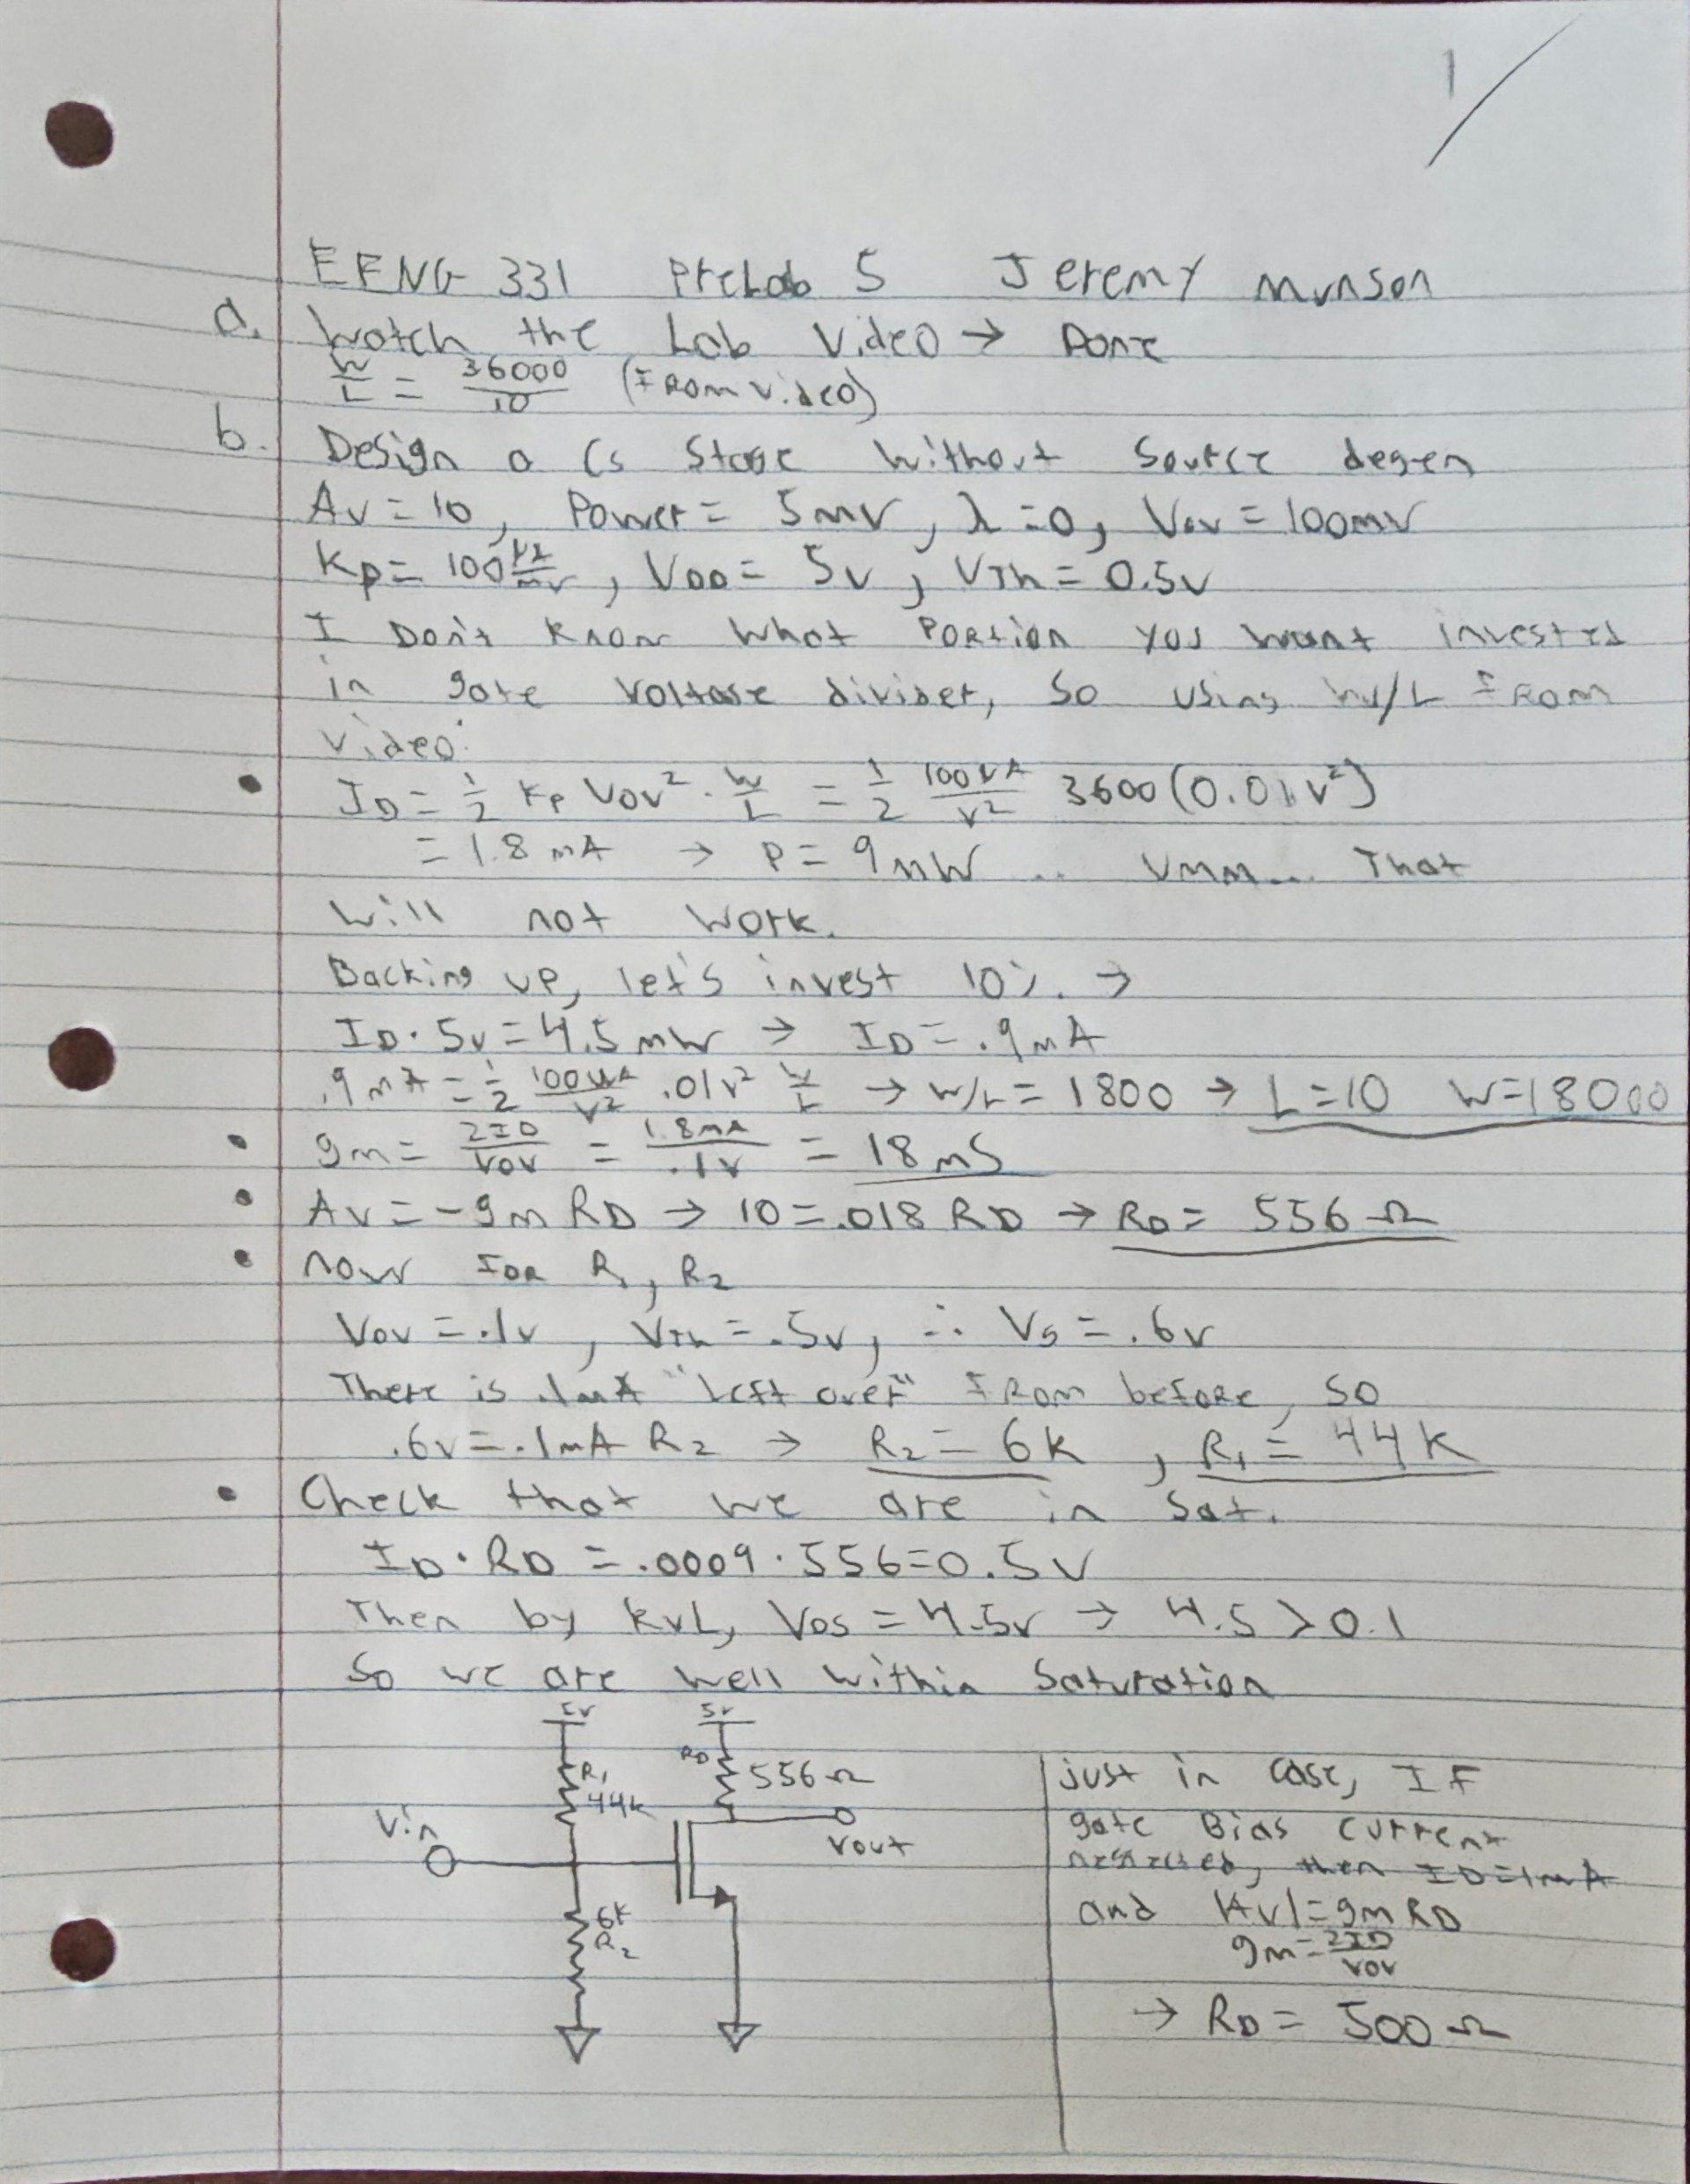 1/
EENG 331 PreLab 5 Jeremy Munson
a. Watch the Lab Video → Done
W/L = 36000/10 (From video)
b. Design a CS Stage without Source degen
Av = 10, Power = 5mW, λ = 0, Vov = 100mV
Kp = 100, VDD = 5V, VTh = 0.5V
I Don't know what Portion you want invested
in gate voltage divider, So using W/L From
video:
• ID = 1/2 Kp Vov² · W/L = 1/2 100uA/V² 3600 (0.01V²)
= 1.8 mA → P = 9mW .. Umm... That
will not work.
Backing up, let's invest 10% →
ID · 5V = 4.5 mW → ID = .9mA
.9mA = 1/2 100uA/V² .01V² W/L → W/L = 1800 → L=10 W=18000
• gm = 2ID/Vov = 1.8mA/.1V = 18mS
• Av = -gm RD → 10 = .018 RD → RD = 556 Ω
• Now For R1, R2
Vov = .1V, VTh = .5V, ∴ VG = .6V
There is .1mA "left over" From before, So
.6V = .1mA R2 → R2 = 6K, R1 = 44K
• Check that we are in Sat.
ID · RD = .0009 · 556 = 0.5V
Then by KVL, VDS = 4.5V → 4.5 > 0.1
So we are well within Saturation
5V 5V
R1
44K
RD
556Ω
Vin
Vout
6K
R2
just in case, IF
gate Bias current
neglected, then ID = 1mA
and |Av| = gm RD
gm = 2ID/Vov
→ RD = 500 Ω